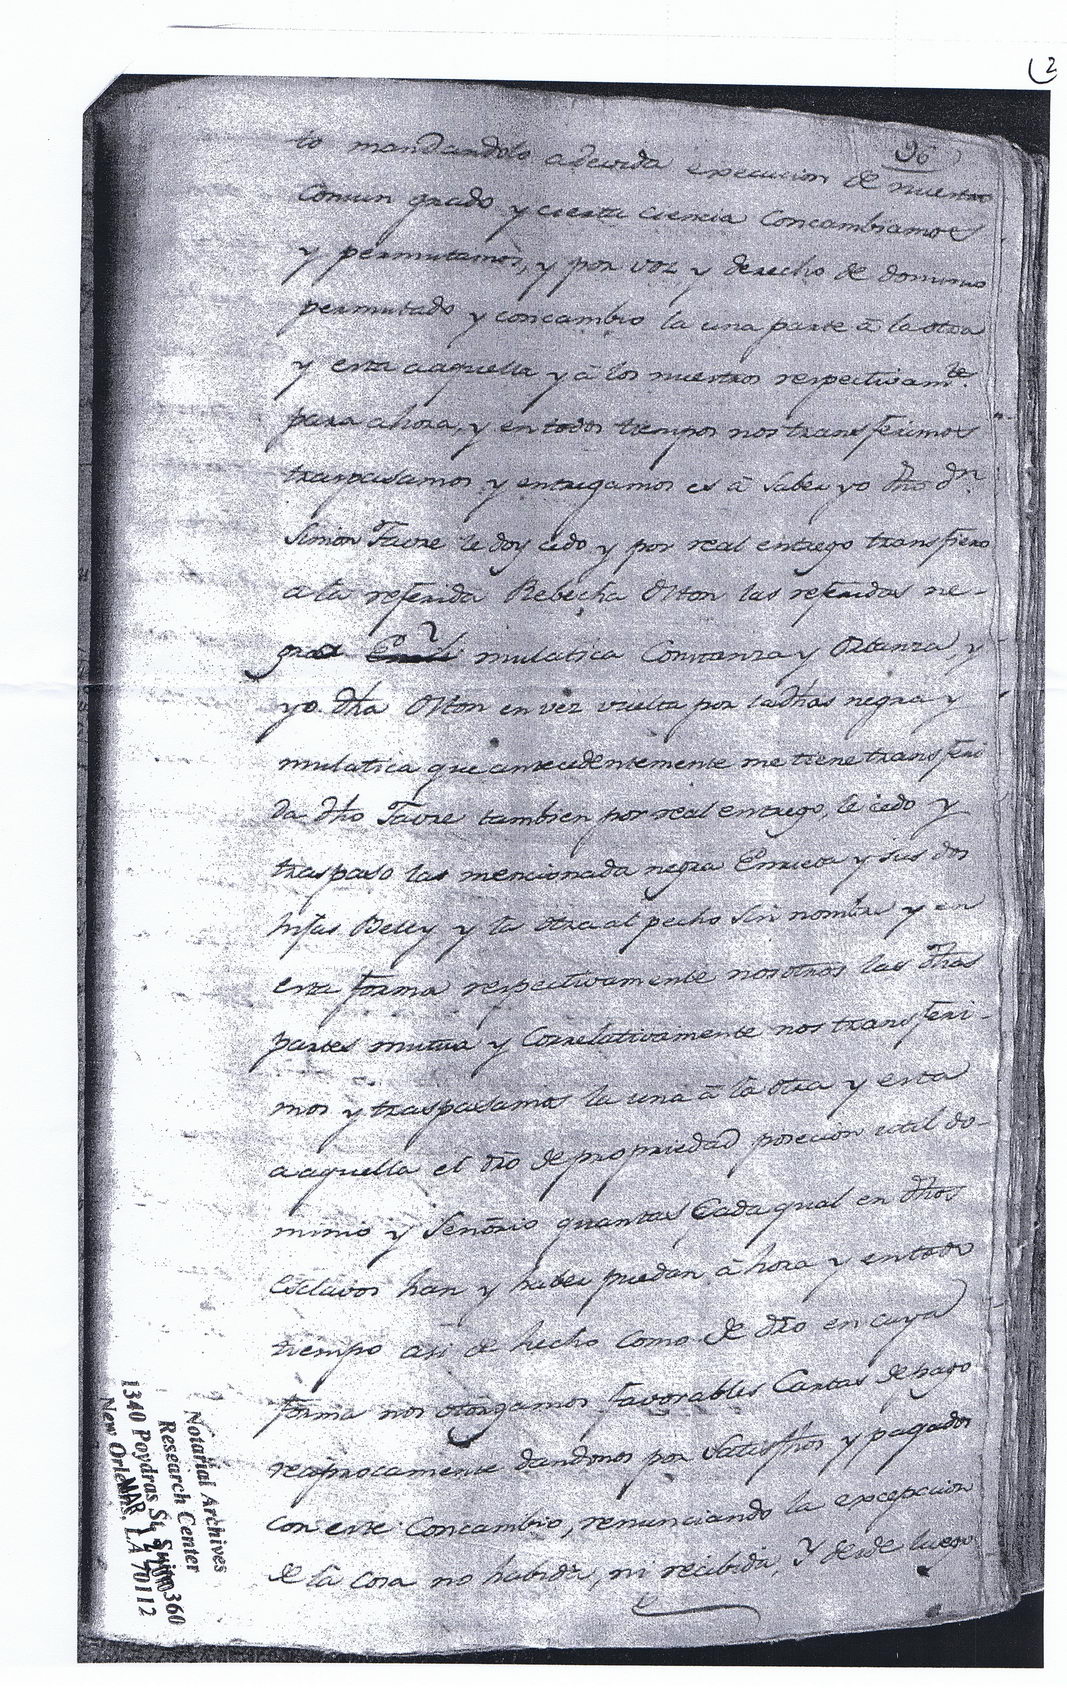 2
96
to mandandolo a devida execucion de nuestro
Comun grado y cierta ciencia Concambiamos
y permutamos, y por voz y derecho de dominio
permutado y concambio la una parte â la otra
y esta aaquella y â los nuestros respectivamte.
para ahora, y entodos tiempos nos transferimos
traspasamos y entregamos es â saber yo dho dn.
Simon Favre le doy cedo y por real entrego transfiero
a la referida Rebecha Olton las referidas ne-
gras mulatica Constanza y Ortanza, y
yo dha Olton en vez vuelta por la dhas negra y
mulatica que antecedentemente me tiene transferi
da dho Favre tambien por real entrego, le cedo y
traspaso las mencionada negra Enrica y sus dos
hijas Betsy y la otra al pecho sin nombre y en
esta forma respectivamente nosotros las dhas
partes mutua y Correlativamente nos transferi-
mos y traspasamos la una â la otra y esta
aaquella el dro de propriedad posecion util do-
minio y Señorio quantas Cada qual en dhos
Esclavos han y haber puedan âhora y entodo
tiempo asi de hecho como de dro en cuya
forma nos otorgamos favorables Cartas de pago
reciprocamente dandonos por Satisfhos y pagados
con este Concambio, renunciando la excepcion
de la cosa no habida, ni recibida, Y desde luego
Notarial Archives
Research Center
1340 Poydras St, Suite 360
New Orleans, LA 70112
MAR